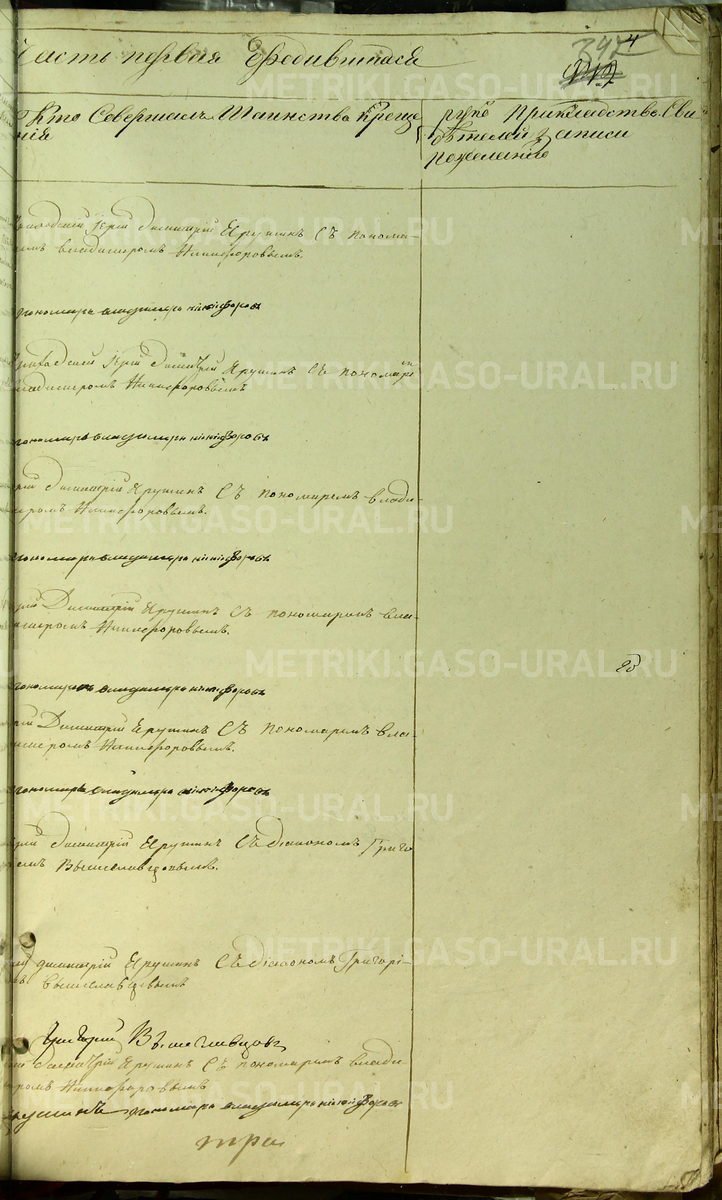 Часть первая О родившихся
347 4
Кто Совершалъ Таинство Креще-
нія
руко Прикладство Сви
дѣтелей записи
по желанію
Приходскій Іерей Димитрій Ярушинъ Съ понома-
ремъ Владимиромъ Никифоровымъ.
пономарь владимеръ никифоровъ
Приходскій Іерей Димитрій Ярушинъ Съ пономаремъ
владимеромъ Никифоровымъ
пономарь владимеръ никифоровъ
Іерей Димитрій Ярушинъ Съ пономаремъ Влади-
миромъ Никифоровымъ.
пономарь владимеръ никифоровъ
Іерей Димитрій Ярушинъ Съ пономаремъ Вла-
димеромъ Никифоровымъ.
пономарь владимеръ никифоровъ
Іерей Димитрій Ярушинъ Съ пономаремъ Вла-
димеромъ Никифоровымъ.
пономарь владимеръ никифоровъ
Іерей Димитрій Ярушинъ Съ діакономъ Григо
ремъ Вышеславцовымъ.
Іерей димитрій Ярушинъ Съ діакономъ Григорі-
емъ Вышеславцовымъ
Григорій Вышеславцовъ
Іерей Димитрій Ярушинъ Съ пономаремъ Влади
миромъ Никифоровымъ
Ярушинъ пономарь владимеръ никифоровъ
три
METRIKI.GASO-URAL.RU